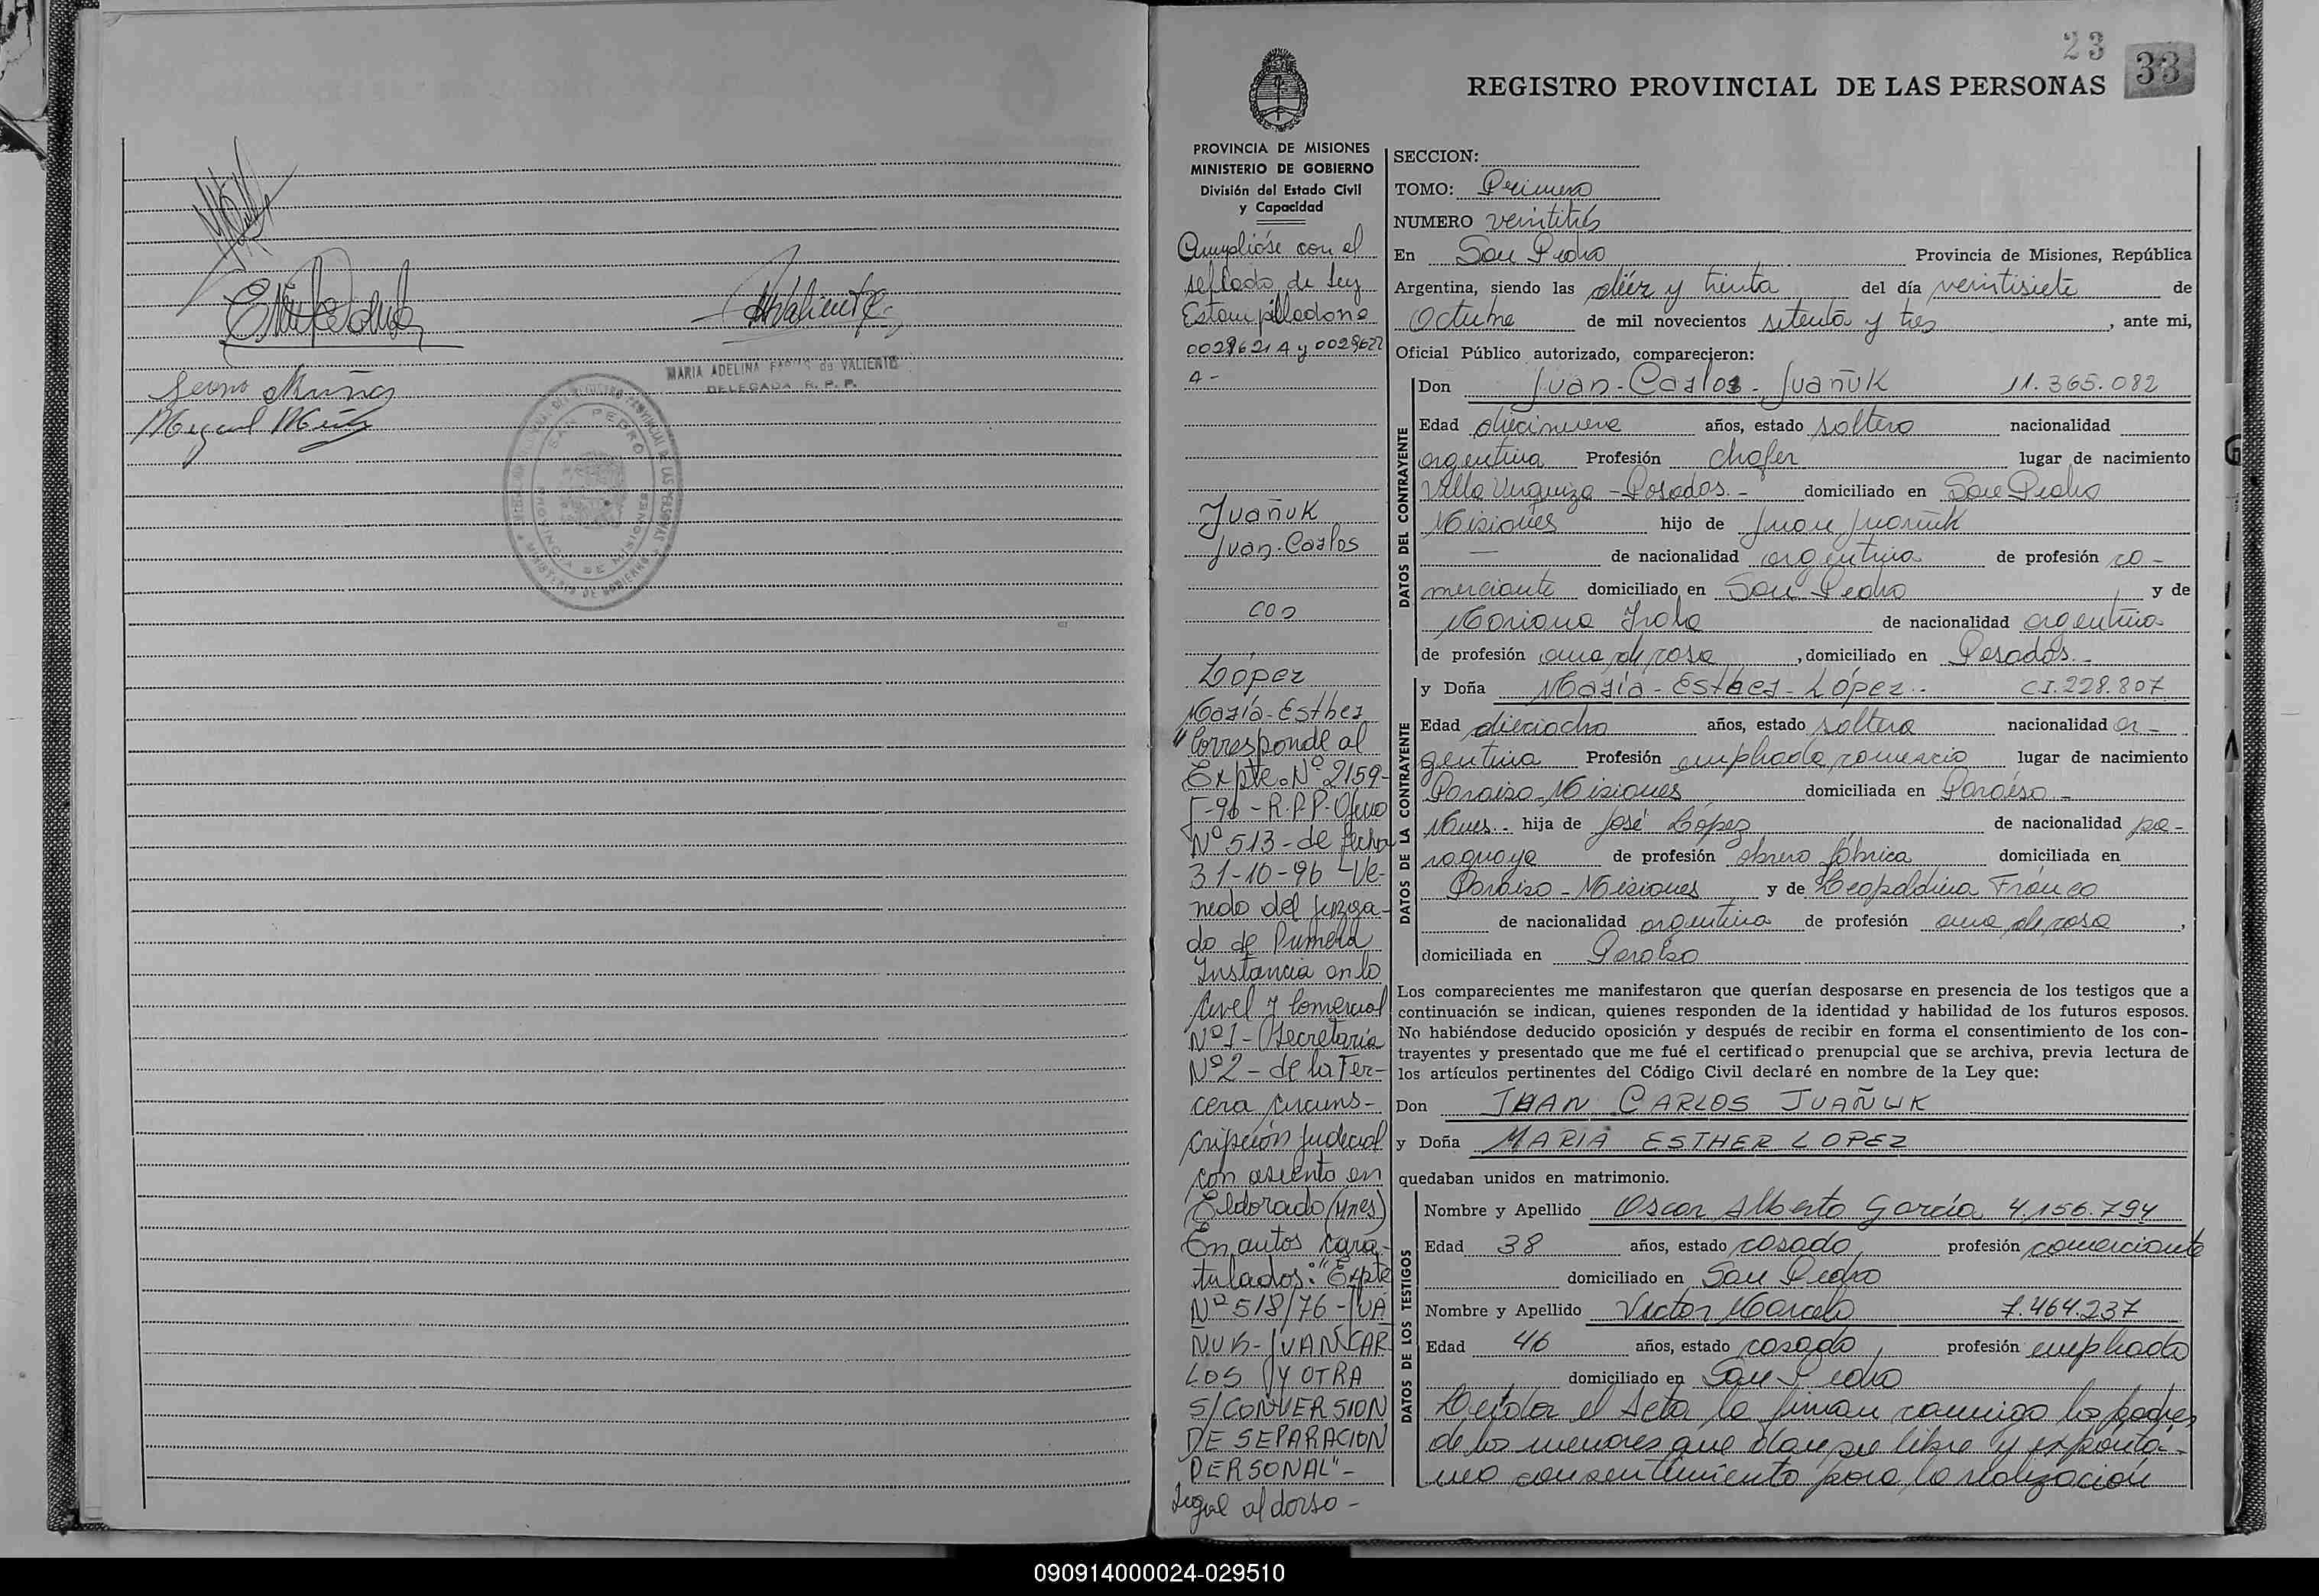 MARIA ADELINA de VALIENTE
DELEGADA R. P. P.
SAN PEDRO
Miguel
23
33
REGISTRO PROVINCIAL DE LAS PERSONAS
PROVINCIA DE MISIONES
MINISTERIO DE GOBIERNO
División del Estado Civil
y Capacidad
Cumplióse con el
sellado de Ley
Juañuk
Juan-Carlos
con
López
María-Esther
"Corresponde al
Expte. Nº 2159-
-96-R.P.P. Oficio
Nº 513-de fecha
31-10-96 - Ve-
nido del Juzga-
do de Primera
Instancia en lo
Civil y Comercial
Nº1-Secretaría
Nº2-de la Ter-
cera Circuns-
cripción Judicial
con asiento en
Eldorado (Mnes)
En autos cara-
tulados: "Expte
Nº 518/76-JUA
ÑUK-JUAN CAR
LOS Y OTRA
S/CONVERSION
DE SEPARACION
PERSONAL"-
Sigue al dorso-
SECCION:
TOMO: Primero
NUMERO veintitrés
En San Pedro Provincia de Misiones, República
Argentina, siendo las diéz y treinta del día veintisiete de
Octubre de mil novecientos setenta y tres, ante mi,
Oficial Público autorizado, comparecieron:
DATOS DEL CONTRAYENTE
Don Juan-Carlos-Juañuk 11.365.082
Edad diecinueve años, estado soltero nacionalidad
argentina Profesión chofer lugar de nacimiento
Villa Urquiza-Posadas.- domiciliado en San Pedro
Misiones hijo de Juan Juañuk
— de nacionalidad argentina de profesión co-
merciante domiciliado en San Pedro y de
Mariana Irala de nacionalidad argentina
de profesión ama de casa, domiciliado en Posadas.-
DATOS DE LA CONTRAYENTE
y Doña María-Esther-López.- CI.228.807
Edad dieciocho años, estado soltera nacionalidad ar-
gentina Profesión empleada comercio lugar de nacimiento
Paraiso-Misiones domiciliada en Paraiso.-
Mnes.- hija de José López de nacionalidad pa-
raguaya de profesión obrero fábrica domiciliada en
Paraiso-Misiones y de Leopoldina Franco
de nacionalidad argentina de profesión ama de casa,
domiciliada en Paraiso
Los comparecientes me manifestaron que querían desposarse en presencia de los testigos que a
continuación se indican, quienes responden de la identidad y habilidad de los futuros esposos.
No habiéndose deducido oposición y después de recibir en forma el consentimiento de los con-
trayentes y presentado que me fué el certificado prenupcial que se archiva, previa lectura de
los artículos pertinentes del Código Civil declaré en nombre de la Ley que:
Don JUAN CARLOS JUAÑUK
y Doña MARIA ESTHER LOPEZ
quedaban unidos en matrimonio.
DATOS DE LOS TESTIGOS
Nombre y Apellido Oscar Alberto García 4.156.794
Edad 38 años, estado casado, profesión comerciante
domiciliado en San Pedro
Nombre y Apellido Victor Marcelo 7.464.237
Edad 46 años, estado casado, profesión empleado
domiciliado en San Pedro
el Acta la firman conmigo los padres
de los menores que dan su libre y expontá-
neo consentimiento para la realización
090914000024-029510